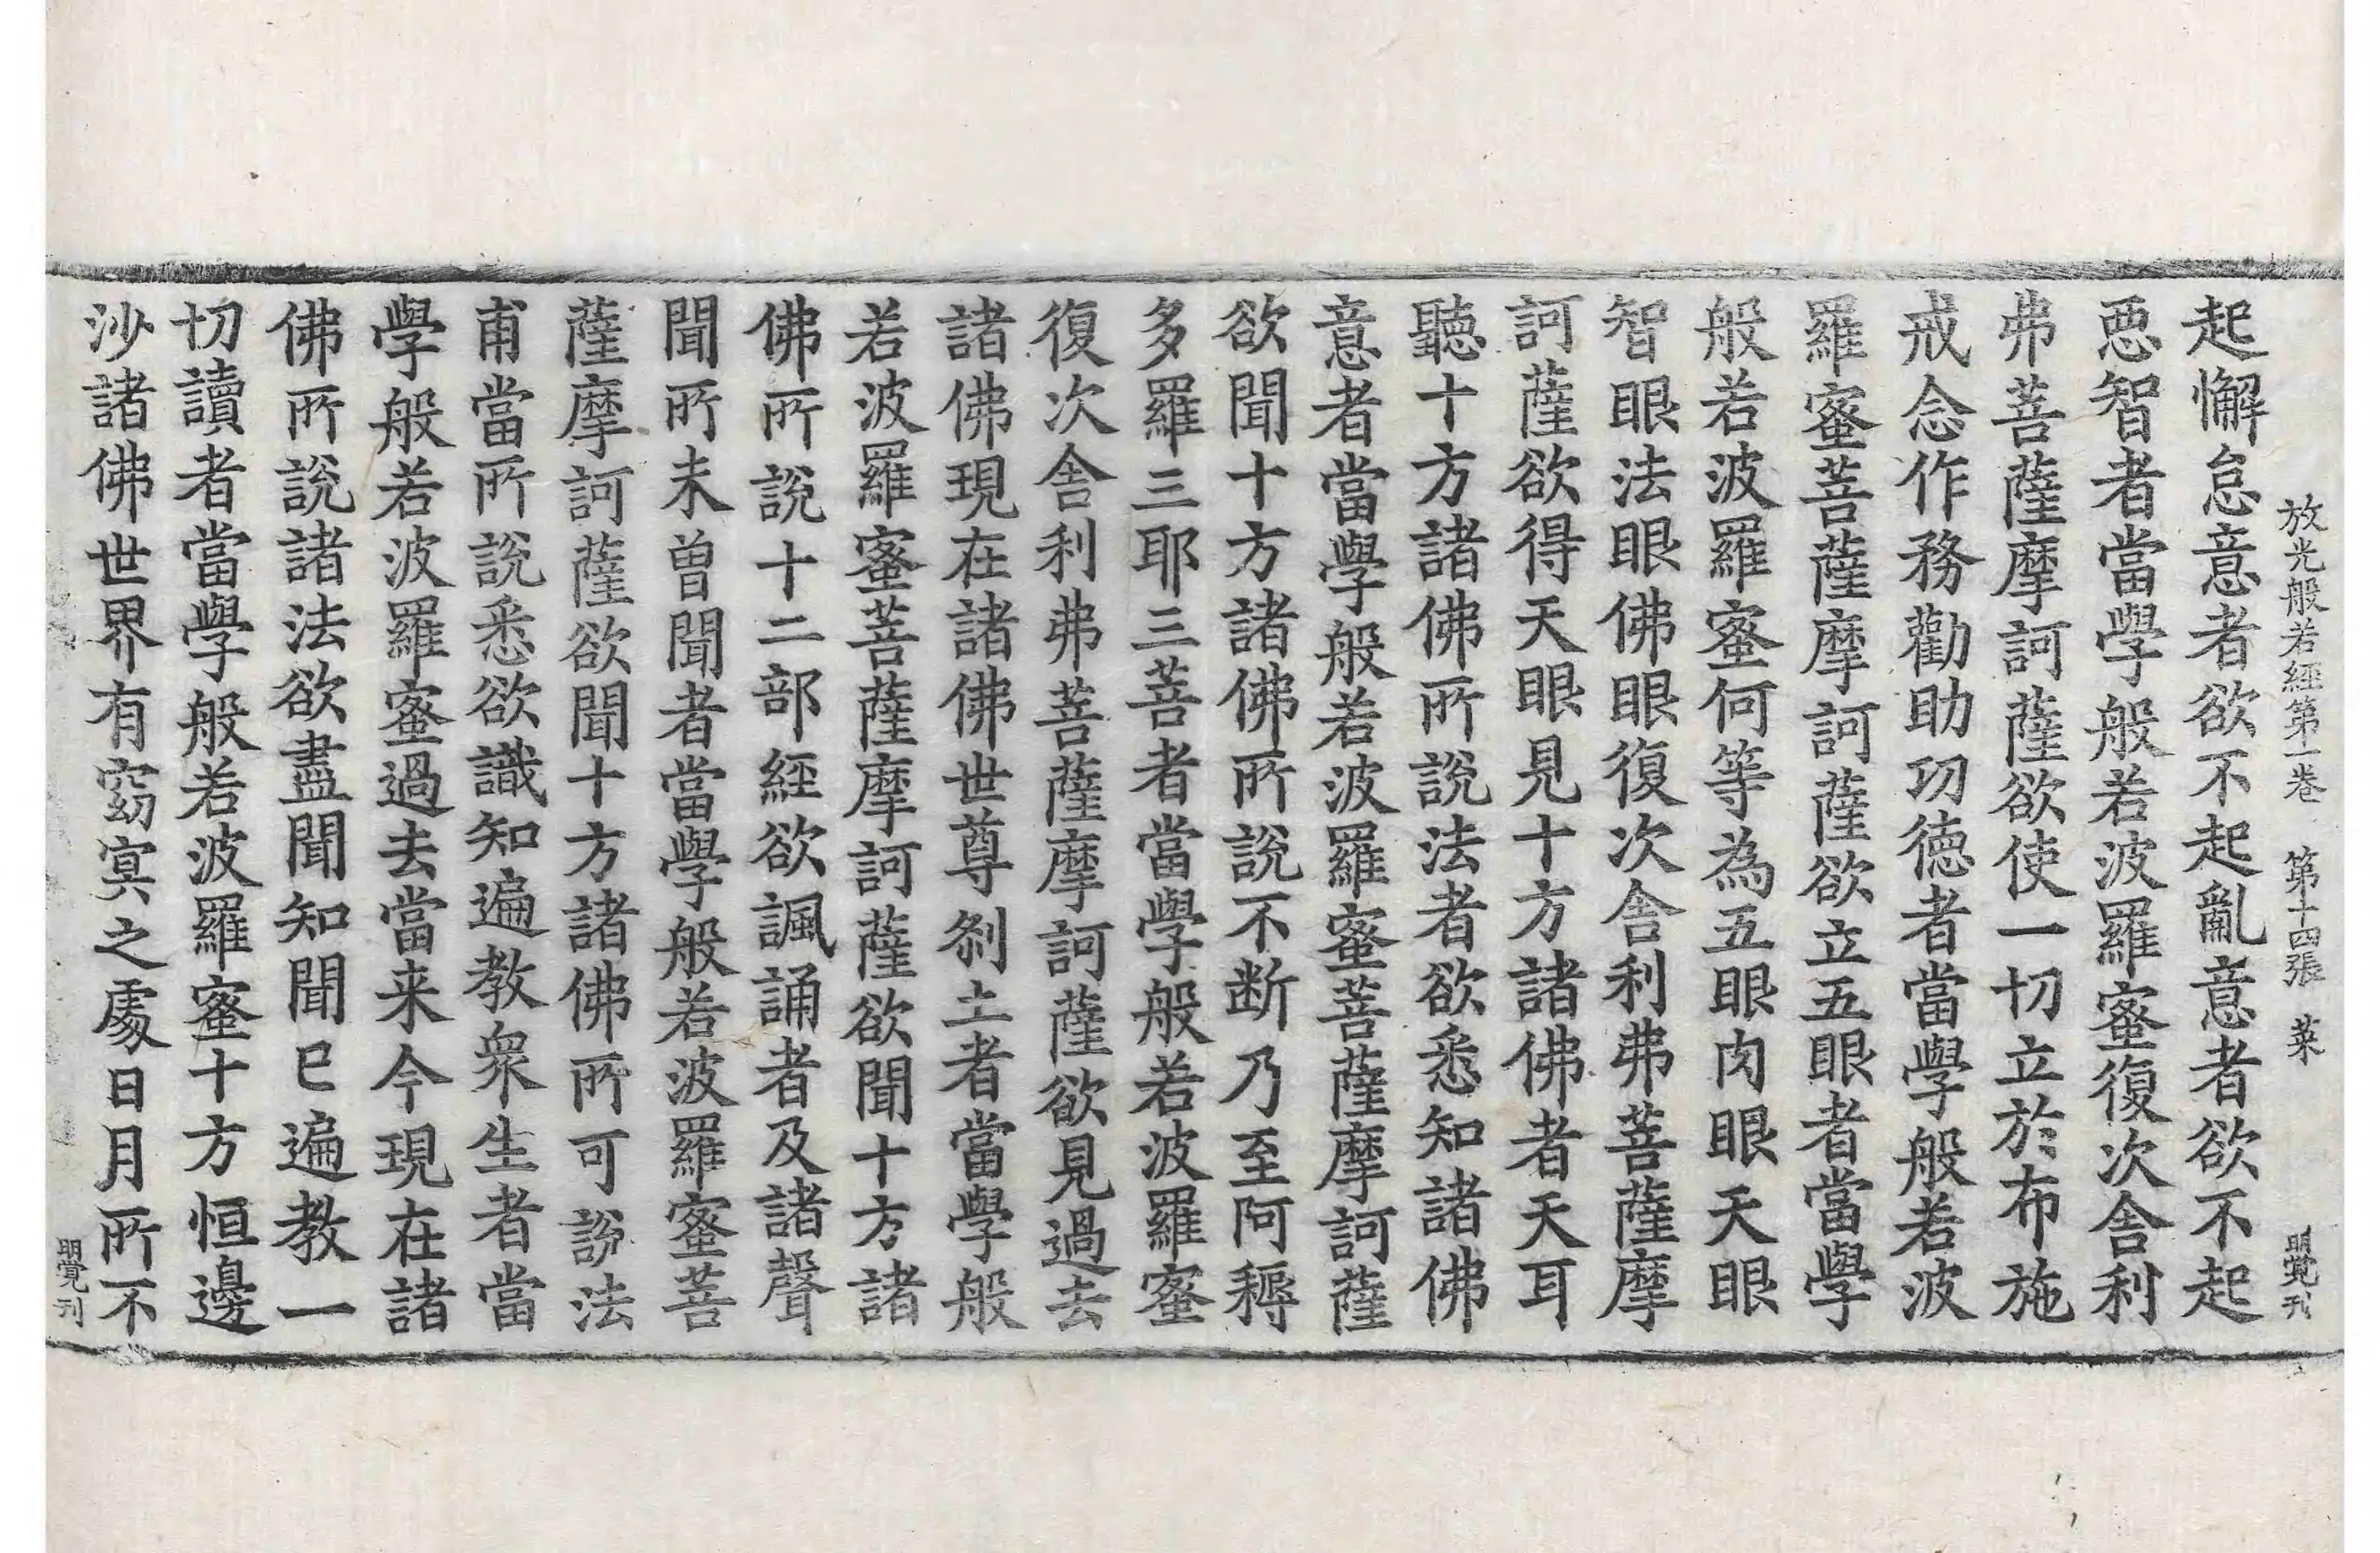 放光般若經第一卷 第十四張 菜 明覺刊
起懈怠意者欲不起亂意者欲不起
惡智者當學般若波羅蜜復次舍利
弗菩薩摩訶薩欲使一切立於布施
戒念作務勸助功德者當學般若波
羅蜜菩薩摩訶薩欲立五眼者當學
般若波羅蜜何等為五眼肉眼天眼
智眼法眼佛眼復次舍利弗菩薩摩
訶薩欲得天眼見十方諸佛者天耳
聽十方諸佛所說法者欲悉知諸佛
意者當學般若波羅蜜菩薩摩訶薩
欲聞十方諸佛所說不断乃至阿耨
多羅三耶三菩者當學般若波羅蜜
復次舍利弗菩薩摩訶薩欲見過去
諸佛現在諸佛世尊刹土者當學般
若波羅蜜菩薩摩訶薩欲聞十方諸
佛所說十二部經欲諷誦者及諸聲
聞所未曾聞者當學般若波羅蜜菩
薩摩訶薩欲聞十方諸佛所可說法
甫當所說悉欲識知遍教衆生者當
學般若波羅蜜過去當来今現在諸
佛所說諸法欲盡聞知聞已遍教一
切讀者當學般若波羅蜜十方恒邊
沙諸佛世界有窈冥之處日月所不
明覺刊